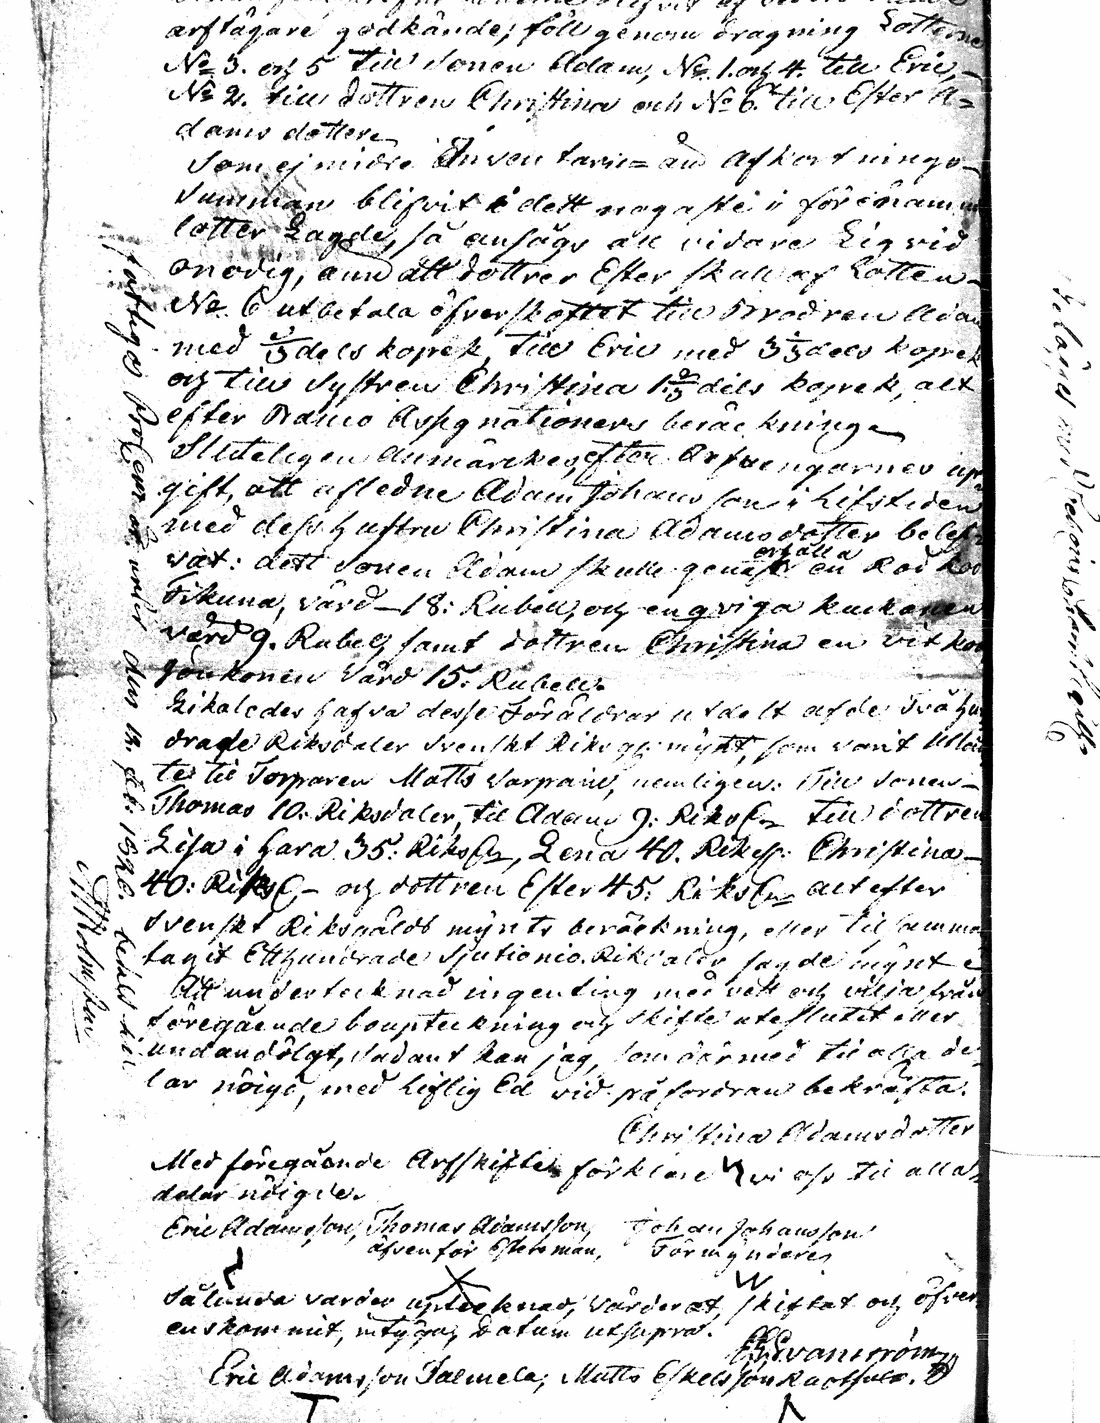 arftagare godkände, föll genom dragning Lotterne
No 3. och 5 till Sonen Adam, No. 1. och 4. till Eric,
No 2. till dottren Christina och No 6. till Ester A=
dams dotter.
Som ej midre Inventarie= än Afkortnings=
Summan blifvit i dett nogaste i förenämnde
lotter Lagde, så ansågs all vidare Liqvid
onödig, ann att dottren Ester skall af Lotten
No. 6 utbetala öfverskottet till Brodren Adam
med dels kopek, till Eric med 3 dels kopek
och till Systren Christina 1 dels kopek, alt
efter Banco Assignationers beräckning.
Sluteligen anmärckes, efter Arfvengarnes up=
gift, att afledne Adam Johansson i Lifstiden
med dess hustru Christina Adamsdotter belef=
vat: dett Sonen Adam skulle genast erhålla en Röd ko
Tikuna, värd 18: Rubell, och en qviga kuckonen
värd 9. Rubel, samt dottren Christina en vit ko
Joukonen värd 15. Rubell.
Likaledes hafva desse Föräldrar utdelt af de Två hun
drade Riksdaler Svenskt Riksg: mynt, som varit
te til Torparen Matts Varpain, nemligen: Till Sonen
Thomas 10: Riksdaler, til Adam 9: Riks till dottren
Lisa i Hara 35: Riks, Lena 40. Riks. Christina
40: Riks och dottren Ester 45. Riks alt efter
Svenskt Riksgälds mynts beräckning, eller tilsamman
tagit Etthundrade Sjutionio Riksdaler sagde mynt
Att undertecknad ingenting med vett och vilja från
föregående bouptekning och skifte uteslutit eller
undandölgt, sådant kan jag, som därmed til alla de=
lar nöigd, med Liflig Ed vid påfordran bekräfta.
Christina Adamsdotter
Med föregående Arfskifte förklare vi oss til alla
delar nöigde.
Eric Adamsson, Thomas Adamsson, Johan Johansson
äfven för Esters man, Förmyndere
Sålunda varder uptecknad, värderat, skiftat och öfver
enskommit, intyga, Datum utsupra.
Qvanström
Eric Adamsson Salmela, Matts Eskelsson
under den 12. 1826.